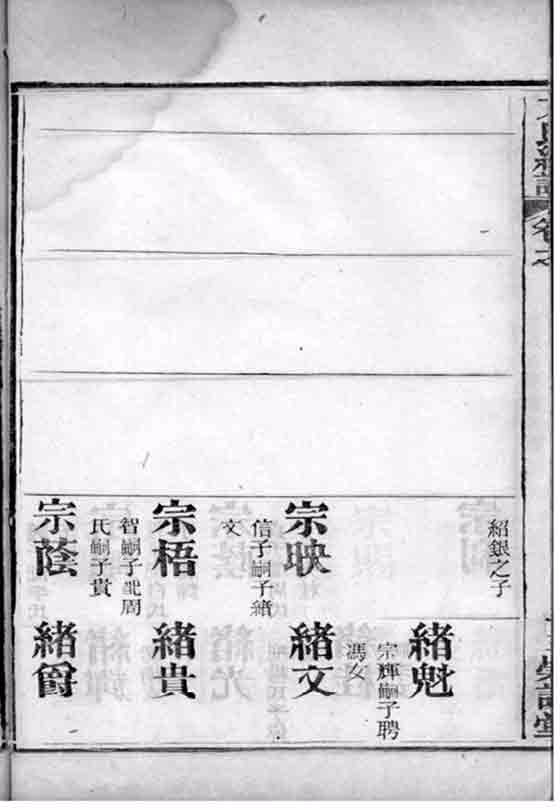 卷七
紹銀之子
緒魁
宗輝嗣子聘
馮女
宗映
信子嗣子緒
文
緒文
宗梧
智嗣子配周
氏嗣子貴
緒貴
宗蔭
緒爵